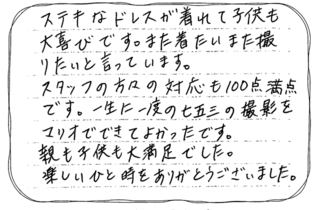 ステキなドレスが着れて子供も
大喜びです。また着たいまた撮
りたいと言っています。
スタッフの方々の対応も100点満点
です。一生に一度の七五三の撮影を
マリオでできてよかったです。
親も子供も大満足でした。
楽しいひと時をありがとうございました。